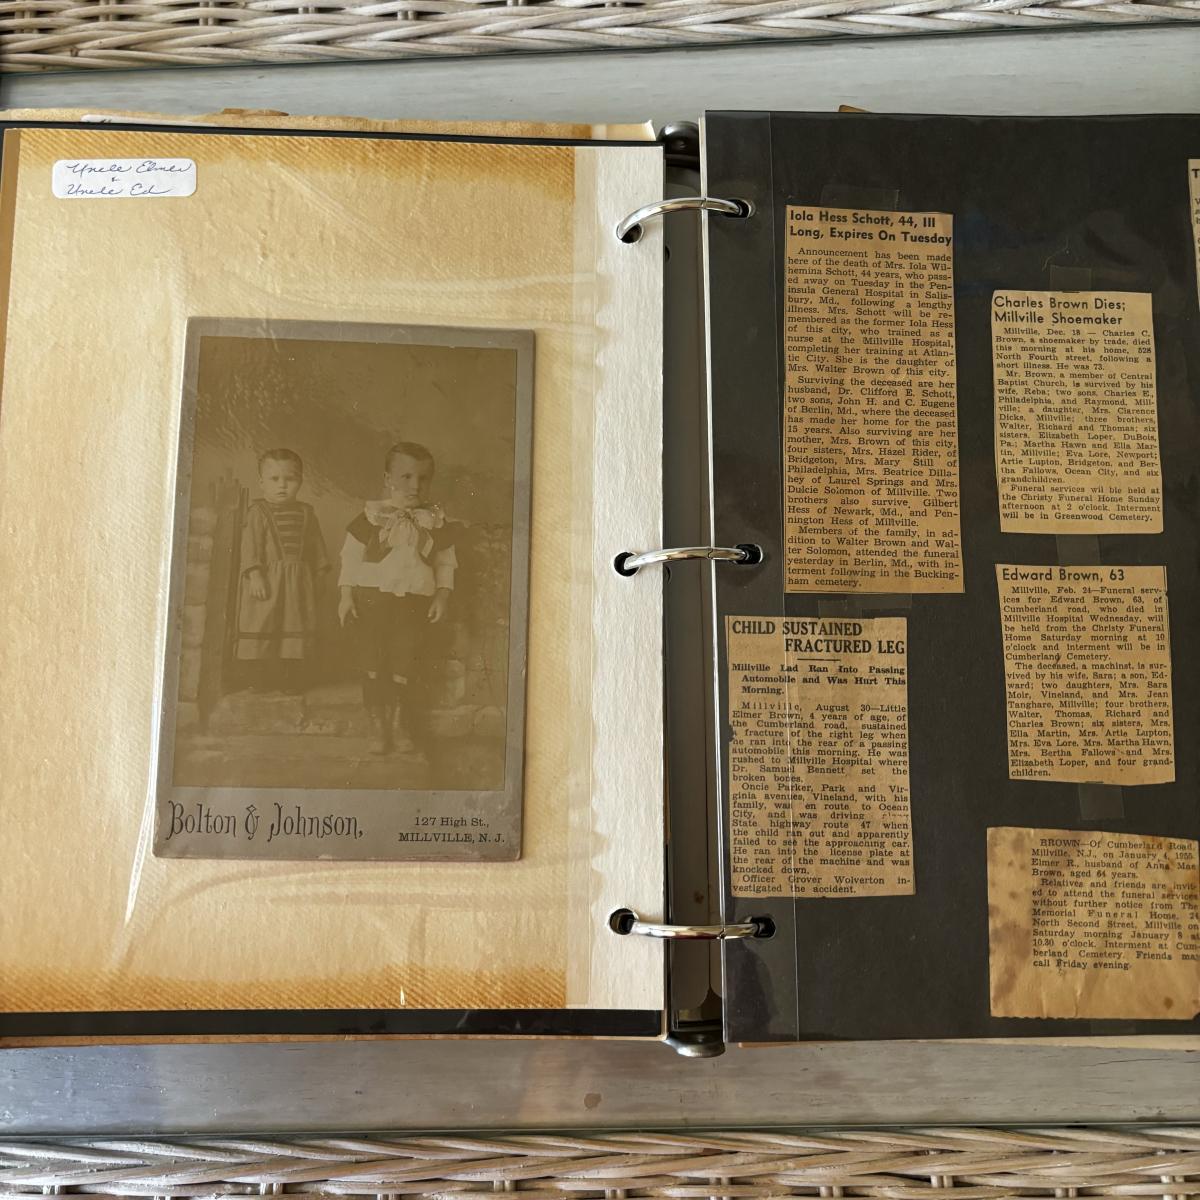 Uncle Elmer
&
Uncle Ed
Bolton & Johnson,
127 High St.,
MILLVILLE, N. J.
Iola Hess Schott, 44, Ill
Long, Expires On Tuesday
Announcement has been made
here of the death of Mrs. Iola Wil-
hemina Schott, 44 years, who pass-
ed away on Tuesday in the Pen-
insula General Hospital in Salis-
bury, Md., following a lengthy
illness. Mrs. Schott will be re-
membered as the former Iola Hess
of this city, who trained as a
nurse at the Millville Hospital,
completing her training at Atlan-
tic City. She is the daughter of
Mrs. Walter Brown of this city.
Surviving the deceased are her
husband, Dr. Clifford E. Schott,
two sons, John H. and C. Eugene
of Berlin, Md., where the deceased
has made her home for the past
15 years. Also surviving are her
mother, Mrs. Brown of this city,
four sisters, Mrs. Hazel Rider, of
Bridgeton, Mrs. Mary Still of
Philadelphia, Mrs. Beatrice Dilla-
hey of Laurel Springs and Mrs.
Dulcie Solomon of Millville. Two
brothers also survive, Gilbert
Hess of Newark, Md., and Pen-
nington Hess of Millville.
Members of the family, in ad-
dition to Walter Brown and Wal-
ter Solomon, attended the funeral
yesterday in Berlin, Md., with in-
terment following in the Bucking-
ham cemetery.
CHILD SUSTAINED
FRACTURED LEG
Millville Lad Ran Into Passing
Automobile and Was Hurt This
Morning.
Millville, August 30—Little
Elmer Brown, 4 years of age, of
the Cumberland road, sustained
a fracture of the right leg when
he ran into the rear of a passing
automobile this morning. He was
rushed to Millville Hospital where
Dr. Samuel Bennett set the
broken bones.
Oncie Parker, Park and Vir-
ginia avenues, Vineland, with his
family, was en route to Ocean
City, and was driving
State highway route 47 when
the child ran out and apparently
failed to see the approaching car.
He ran into the license plate at
the rear of the machine and was
knocked down.
Officer Grover Wolverton in-
vestigated the accident.
Charles Brown Dies;
Millville Shoemaker
Millville, Dec. 18 — Charles C.
Brown, a shoemaker by trade, died
this morning at his home, 528
North Fourth street, following a
short illness. He was 73.
Mr. Brown, a member of Central
Baptist Church, is survived by his
wife, Reba; two sons, Charles E.,
Philadelphia, and Raymond, Mill-
ville; a daughter, Mrs. Clarence
Dicks, Millville; three brothers,
Walter, Richard and Thomas; six
sisters, Elizabeth Loper, DuBois,
Pa.; Martha Hawn and Ella Mar-
tin, Millville; Eva Lore, Newport;
Artie Lupton, Bridgeton, and Ber-
tha Fallows, Ocean City, and six
grandchildren.
Funeral services wil ble held at
the Christy Funeral Home Sunday
afternoon at 2 o'clock. Interment
will be in Greenwood Cemetery.
Edward Brown, 63
Millville, Feb. 24—Funeral serv-
ices for Edward Brown, 63, of
Cumberland road, who died in
Millville Hospital Wednesday, will
be held from the Christy Funeral
Home Saturday morning at 10
o'clock and interment will be in
Cumberland Cemetery.
The deceased, a machinst, is sur-
vived by his wife, Sara; a son, Ed-
ward; two daughters, Mrs. Sara
Moir, Vineland, and Mrs. Jean
Tanghare, Millville; four brothers,
Walter, Thomas, Richard and
Charles Brown; six sisters, Mrs.
Ella Martin, Mrs. Artie Lupton,
Mrs. Eva Lore, Mrs. Martha Hawn,
Mrs. Bertha Fallows and Mrs.
Elizabeth Loper, and four grand-
children.
BROWN—Of Cumberland Road,
Millville, N.J., on January 4, 1955,
Elmer R., husband of Anna Mae
Brown, aged 64 years.
Relatives and friends are invit-
ed to attend the funeral services
without further notice from The
Memorial Funeral Home, 24
North Second Street, Millville on
Saturday morning January 8 at
10.30 o'clock. Interment at Cum-
berland Cemetery. Friends may
call Friday evening.